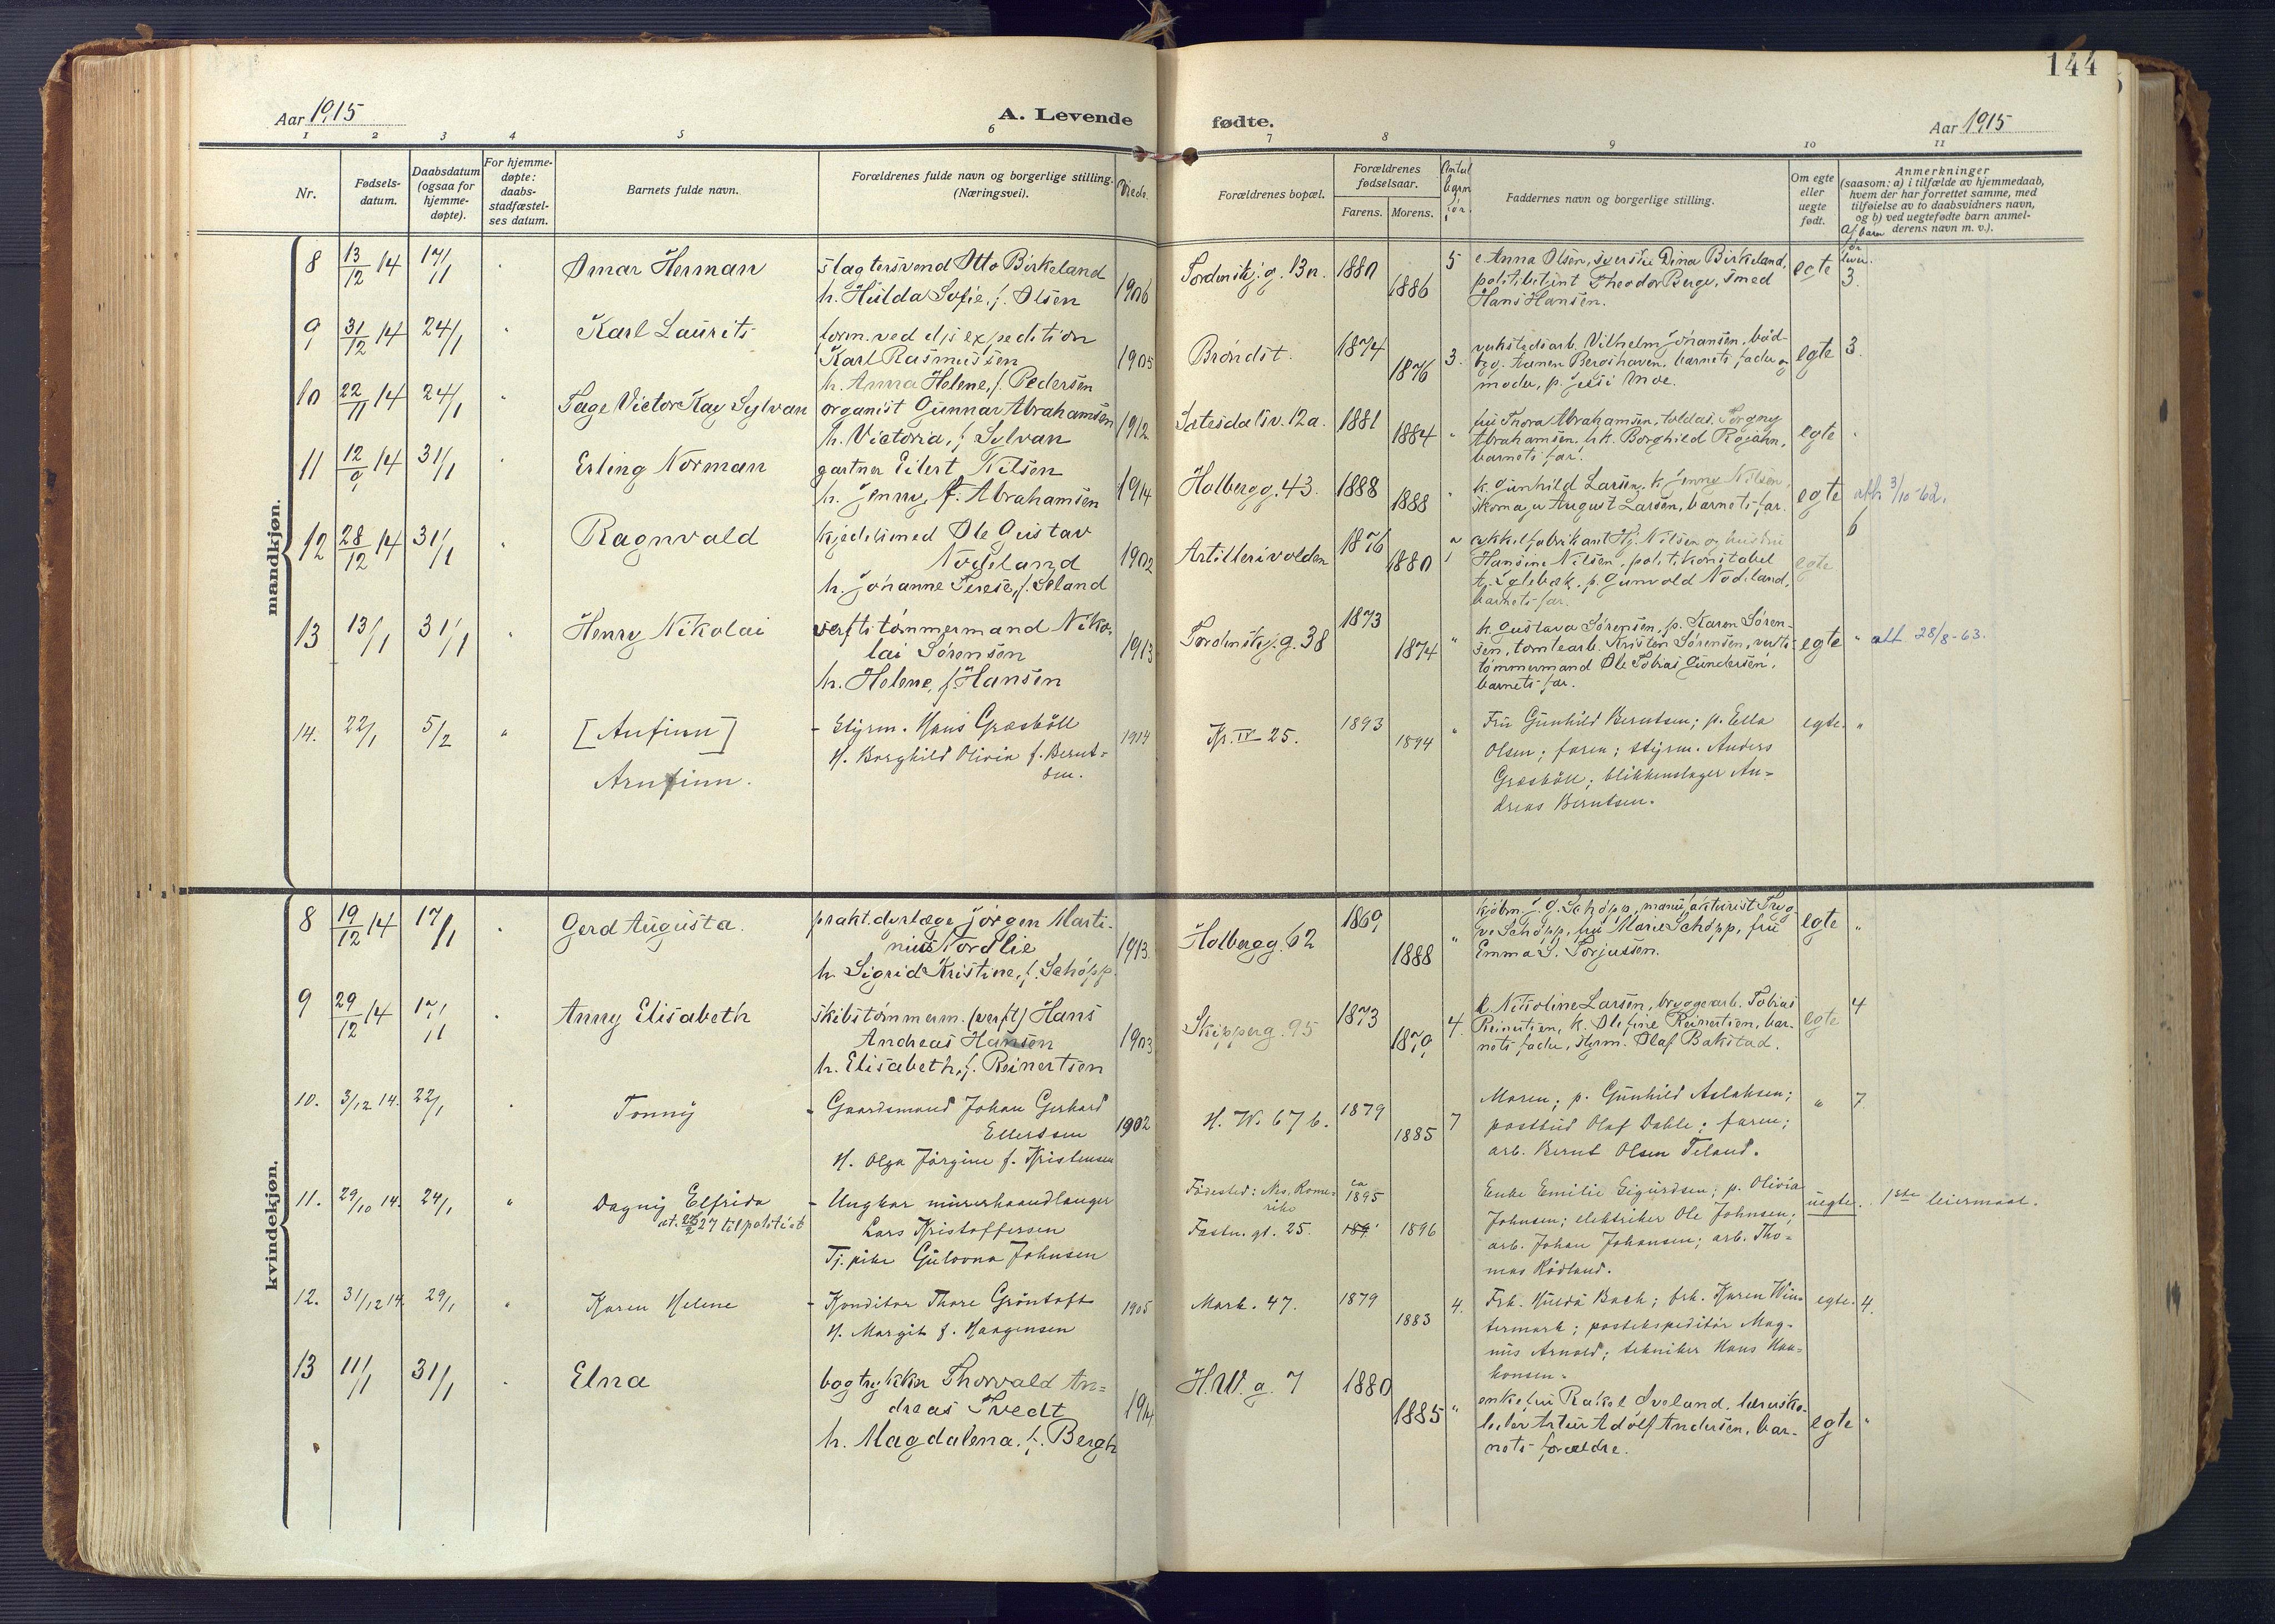 144
Aar 1915
A. Levende fødte.
Aar 1915
1 2 3 4 5 6 7 8 9 10 11
Nr.
Fødsels-
datum.
Daabsdatum
(ogsaa for
hjemme-
døpte).
For hjemme-
døpte:
daabs-
stadfæstel-
ses datum.
Barnets fulde navn.
Forældrenes fulde navn og borgerlige stilling.
(Næringsvei).
Forældrenes bopæl.
Forældrenes
fødselsaar.
Farens. Morens.
Antal
barn
før.
Faddernes navn og borgerlige stilling.
Om egte
eller
uegte
født.
Anmerkninger
(saasom: a) i tilfælde av hjemmedaab,
hvem der har forrettet samme, med
tilføielse av to daabsvidners navn,
og b) ved uegtefødte barn anmel-
derens navn m. v.).
mandkjøn.
8 13/12 14 17/1 Omar Herman
slagtersvend Otto Birkeland
h. Hulda Sofie, f. Olsen 1906
Tordenskj. g. 13 a. 1880 1886 5
e. Anna Olsen, syerske Dina Birkeland,
politibetjent Theodor Berge, smed
Hans Hansen.
egte 3.
9 31/12 14 24/1 Karl Laurits
form. ved dsexpedition
Karl Rasmussen 1905
h. Anna Helene, f. Pedersen
Brøndst. 1874 1876 3.
verkstedsarb. Vilhelm Johansen, bød-
Aanen Bergshaven, barnets fader og
moder, p. Jessi Moe.
egte 3.
10 22/11 14 24/1 Tage Victor Kay Sylvan
organist Gunnar Abrahamsen
h. Victoria, f. Sylvan 1912
Sætesdalsv. 12 a. 1881 1884 "
fru Thora Abrahamsen, toldas. Torgny
Abrahamsen, frk. Borghild Røjahn,
barnets far.
egte "
11 12/9 14 31/1 Erling Norman
gartner Eilert Nilsen
h. Jenny, f. Abrahamsen 1914
Holbergg. 43. 1888 1888 "
k. Gunhild Larsen, k. Jenny Nilsen,
skomager August Larsen, barnets far.
egte att. 3/10-62.
12 28/12 14 31/1 Ragnvald
kjedelsmed Ole Gustav
Nodeland 1902
h. Johanne Terese, f. Eeland
Artillerivolden 1876 1880
cykkelfabrikant Hj. Nilsen og hustru
Hansine Nilsen, politikonstabel
T. Eglebæk, p. Gunvald Nodeland,
barnets far.
egte 6
13 13/1 31/1 Henry Nikolai
verftstømmermand Niko-
lai Sørensen 1913
h. Helene, f. Hansen
Tordenskj. g. 38 1873 1874 "
k. Gustava Sørensen, p. Karen Søren-
sen, tomtearb. Kristen Sørensen, verfts-
tømmermand Ole Tobias Gundersen,
barnets far.
egte " att 28/8-63.
14. 22/1 5/2 " [Anfinn]
Arnfinn.
- Styrm. Hans Græsbøll
H. Borghild Olivia f. Bernt-
sen. 1914
Kr. IV 25. 1893 1894 "
Fru Gunhild Berntsen; p. Ella
Olsen; faren; styrm. Anders
Græsbøll; blikkenslager An-
dreas Berntsen.
egte. "
kvindekjøn.
8 19/12 14 17/1 Gerd Augusta.
prakt. dyrlæge Jørgen Marti-
nius Nordlie 1913
h. Sigrid Kristine, f. Schøpp.
Holbergg. 62 1869 1888 "
kjøbm. J. G. Schøpp, manufakturist Tryg-
ve Schøpp, fru Marie Schøpp, fru
Emma S. Torjussen.
egte "
9 29/12 14 17/1 Anny Elisabeth
skibstømmerm. (verft) Hans
Andreas Hansen 1903
h. Elisabeth, f. Reinertsen
Skipperg. 95 1873 1879 4.
k. Nikoline Larsen, bryggearb. Tobias
Reinertsen, k. Olefine Reinertsen, bar-
nets fader, styrm. Olaf Bakstad.
egte 4
10. 3/12 14. 22/1 Tonny
- Gaardsmand Johan Gerhard
Ellertsen 1902
H. Olga Jørgine f. Kristensen
H. W. 67 b. 1879 1885 7
Moren; p. Gunhild Aslaksen;
postbud Olaf Dahle; faren;
arb. Bernt Olsen Teland.
" 7.
11. 29/10 14. 24/1 " Dagny Elfrida
27 til politiet
- Ungkar murerhaandlanger
Lars Kristoffersen
Tj. pike Gulovna Johnsen
Fødested: Nes, Rome-
rike
Fæstn. gt. 25. ca 1895 1896
Enke Emilie Sigurdsen; p. Olivia
Johnsen; elektriker Ole Johnsen;
arb. Johan Johansen; arb. Tho-
mas Rødland.
uegte. 1ste leiermaal.
12. 31/12 14. 29/1 " Karen Helene
- Konditor Thore Grøntoft 1905
H. Margit f. Haagensen
Mark. 47. 1879 1883 4.
Frk. Hulda Bach; frk. Karen Win-
termark; postekspeditør Mag-
nus Arnold; tekniker Hans Haa-
konsen.
egte. 4.
13 11/1 31/1 Elna
bogtrykker Thorvald An-
dreas Tvedt 1914
h. Magdalena, f. Bergh
H. W. g. 7 1880 1885 "
enkefru Rakel Iveland,
Artur Adolf Andersen, bar-
nets forældre.
egte "